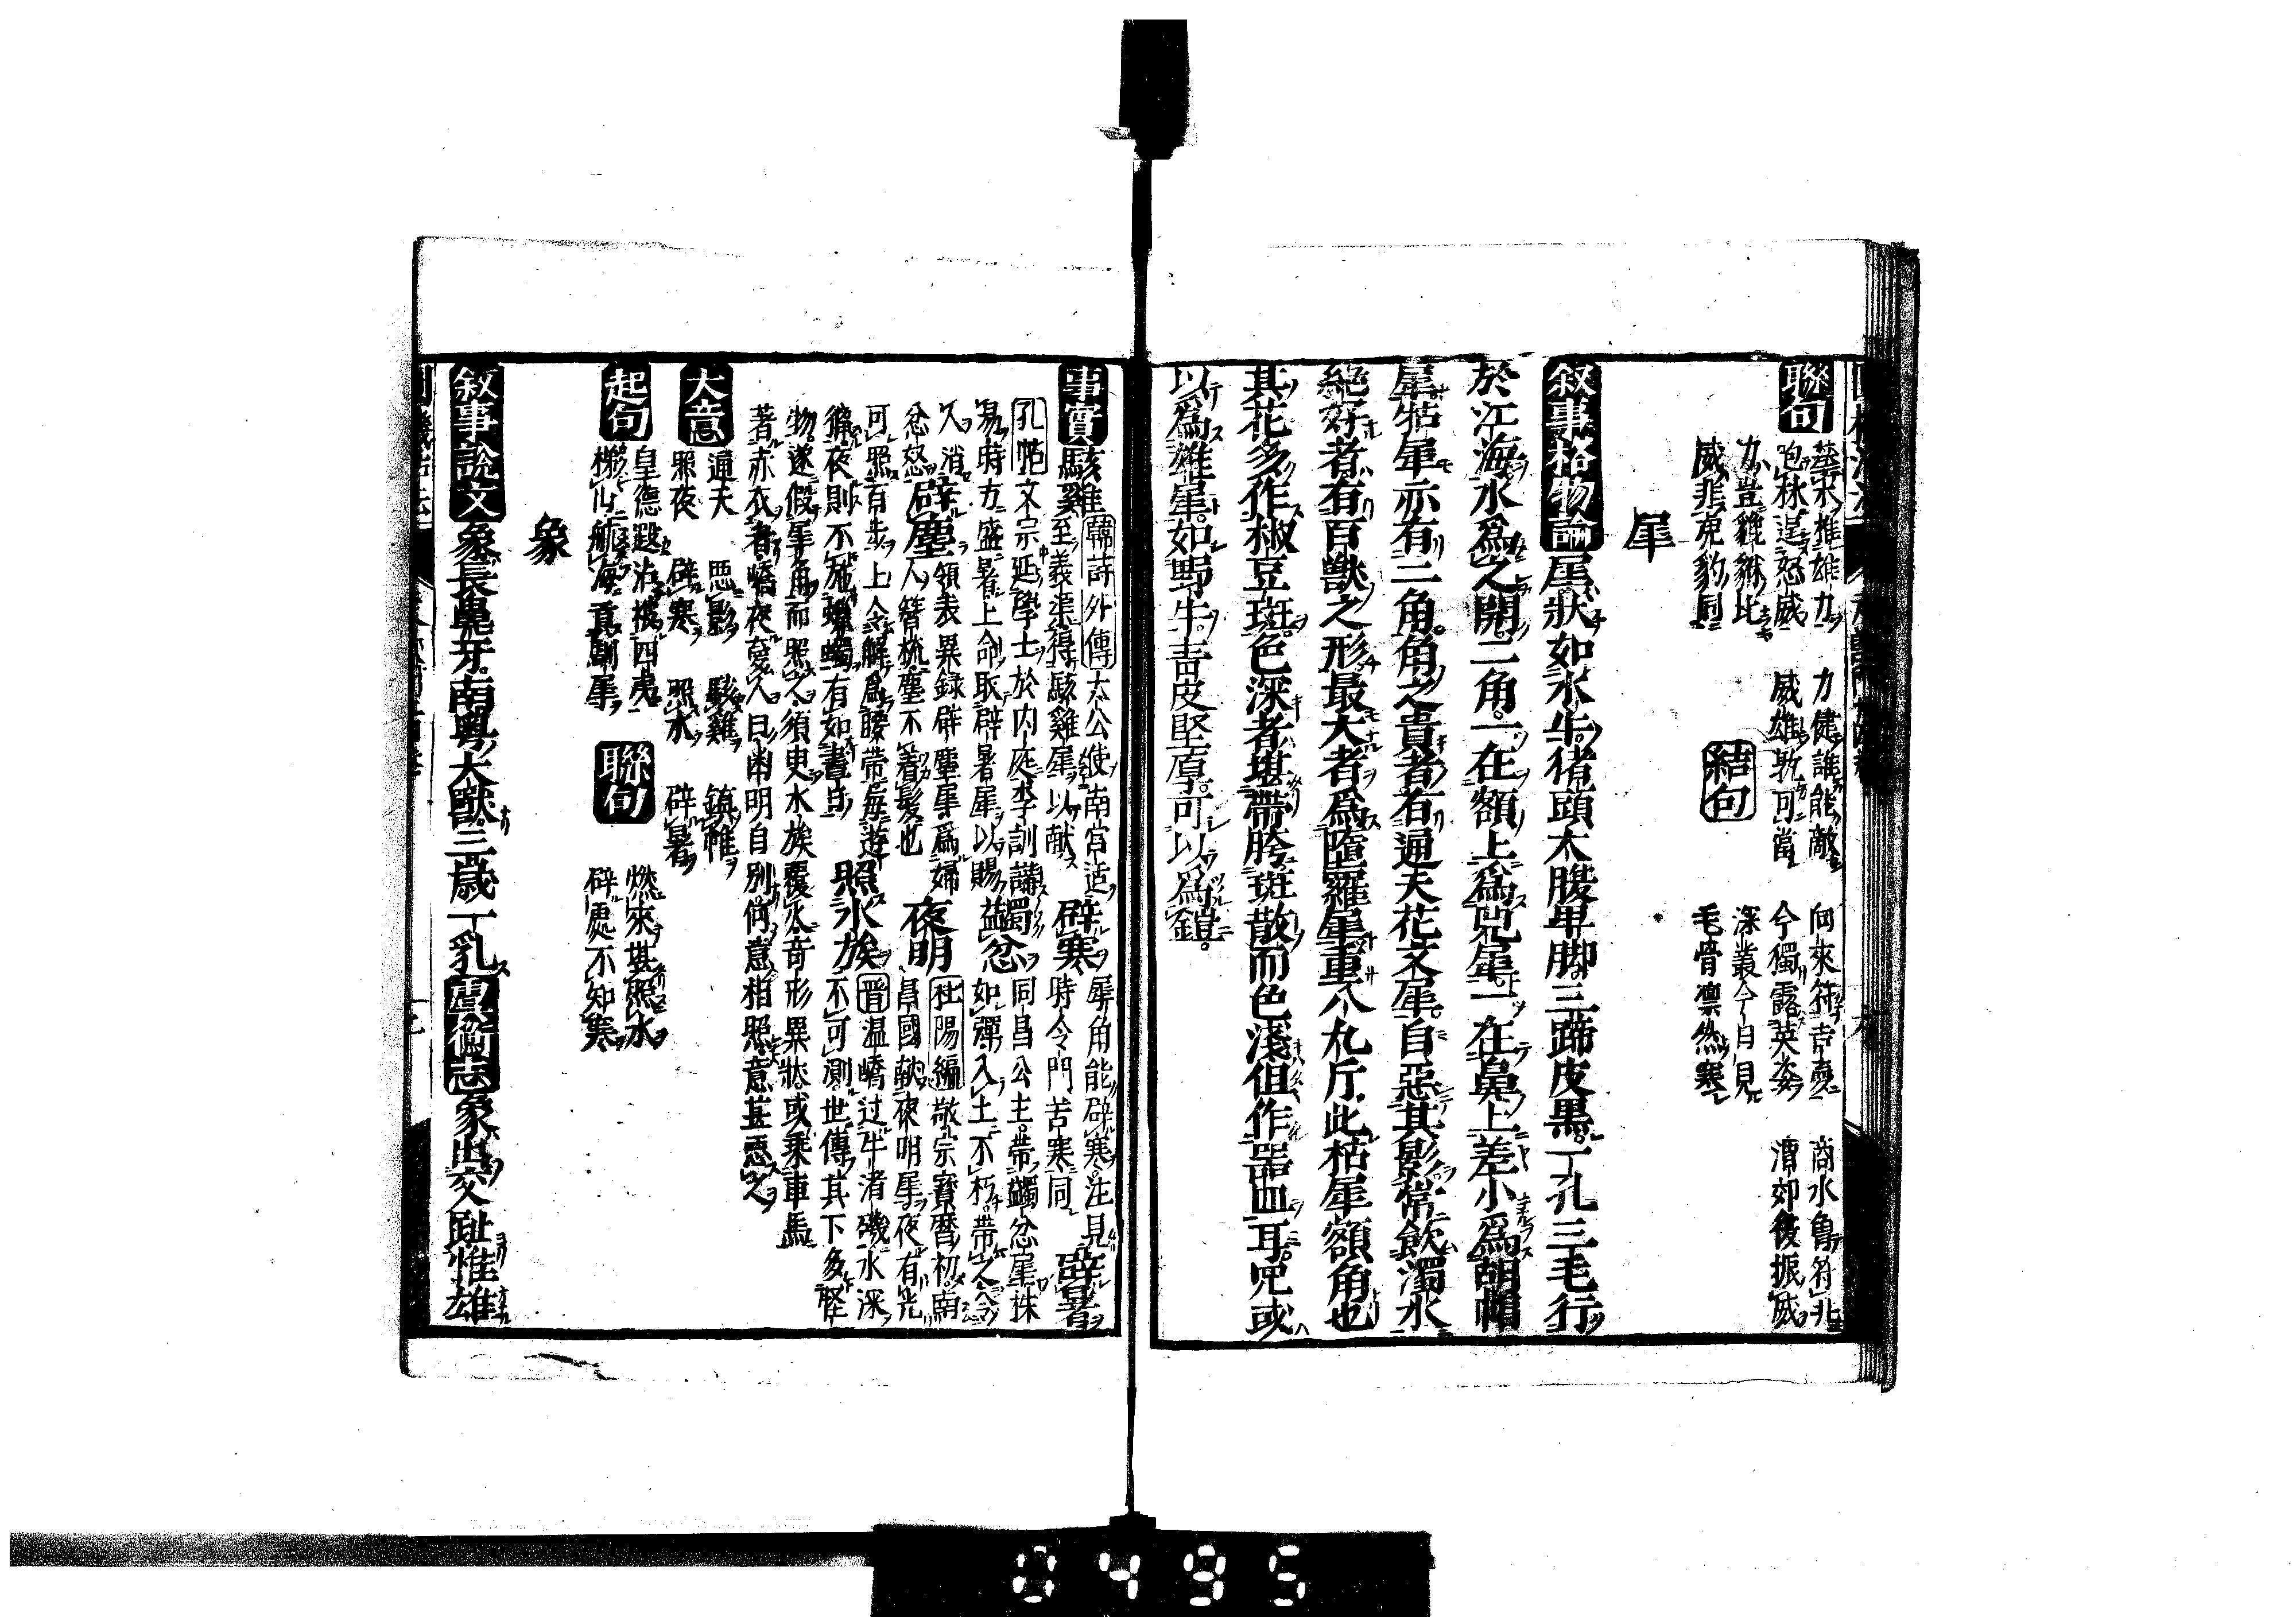 聯句
藝未推雄力 力健誰能敵 向來符吉夢 商水魯符非
咆林逞怒威 威雄孰可當 今獨露英姿 渭郊復振威
力豈貔貅比 結句 深叢今日見
威非兕豹同 毛骨凜然寒
犀
叙事格物論犀狀如水牛猪頭大腹卑脚三蹄皮黒一孔三毛行
於江海水爲之開二角一在額上爲兕犀一在鼻上差小爲胡帽
犀牯犀亦有二角角之貴者有通天花文犀自惡其影常飲濁水
絶好者有百獸之形最大者爲墮羅犀重八九斤此牯犀額角也
其花多作椒豆斑色深者堪帶胯斑散而色淺但作噐皿耳兕或
以爲雄犀如野牛青皮堅厚可以爲鎧
事實 駭雞 韓詩外傳太公使南宮适 辟寒 犀角能辟寒注見 辟暑
至義渠得駭雞犀以献 時令門苦寒同
孔帖文宗延學士於内庭李訓講 蠲忿 同昌公主帶蠲忿犀株
易時方盛暑上命取辟暑犀以賜 如彈入土不朽帶之令
人消 辟塵 領表異録辟塵犀爲婦 夜明 杜陽編敬宗寳暦初南
忿怒 人簪梳塵不著髮也 昌國献夜明犀夜有光
可照百步上令解爲腰帶毎遊 照水族 晋温嶠过牛渚磯水深
獵夜則不施蠟燭有如晝日 不可測世傳其下多怪
物遂假犀角而照之須臾水族覆火奇形異狀或乘車馬
著赤衣者嶠夜夢人曰幽明自別何意相照意甚悪之
大意 通天 悪影 駭雞 鎮帷
照夜 辟寒 照水 辟暑
起句 皇德遐沾被四夷 聯句 燃來堪照水
梯山航海貢馴犀 辟處不知寒
象
叙事説文象長鼻牙南粤大獸三歳一乳 象出交趾惟雄